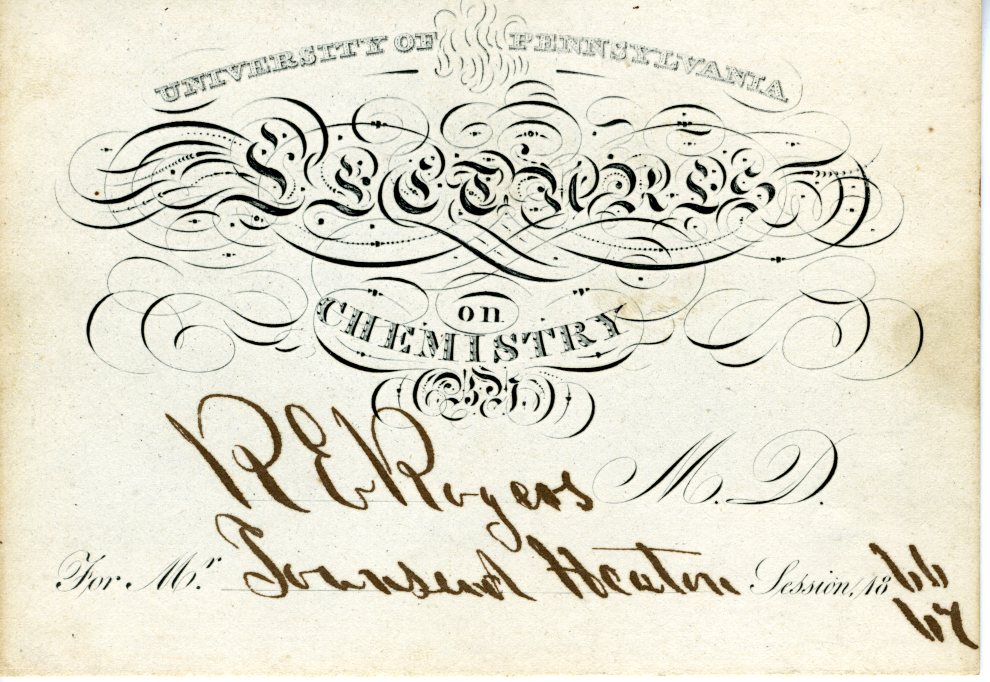 UNIVERSITY OF PENNSYLVANIA
LECTURES
on
CHEMISTRY
BY
R E Rogers M.D.
For Mr. Townsend Heaton Session, 1866
67